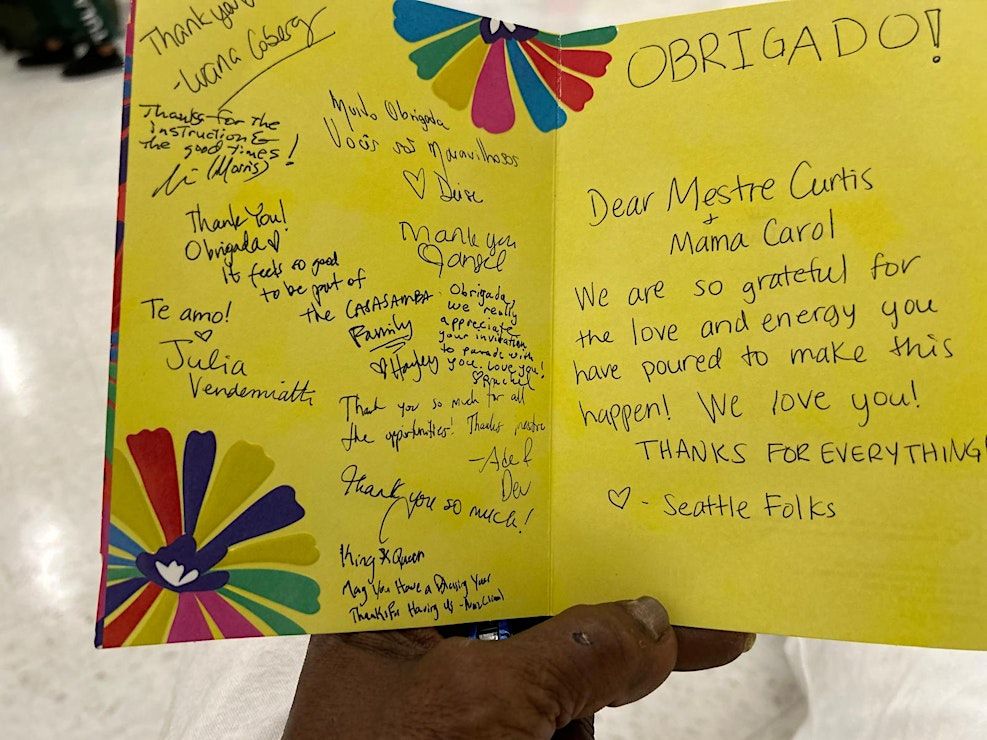 Thank you
-Luana Coberg
Thanks for the
instruction &
the good times!
(Morris)
Thank You!
Obrigada ♡
It feels so good
to be part of
the CASASAMBA
Family
♡ Hayley
Te amo!
♡
Julia
Vendemiatti
Muito Obrigada
Vocês são Maravilhosos
♡ Deise
Thank you
Obrigada,
we really
appreciate
your invitation
to parade with
you. Love you!
♡ Rachel
Thank you so much for all
the opportunities! Thanks mestre
Dev
Thank you so much!
King & Queen
May You Have a Blessing Year
Thanks For Having Us
OBRIGADO!
Dear Mestre Curtis
+
Mama Carol
We are so grateful for
the love and energy you
have poured to make this
happen! We love you!
THANKS FOR EVERYTHING!
♡ - Seattle Folks